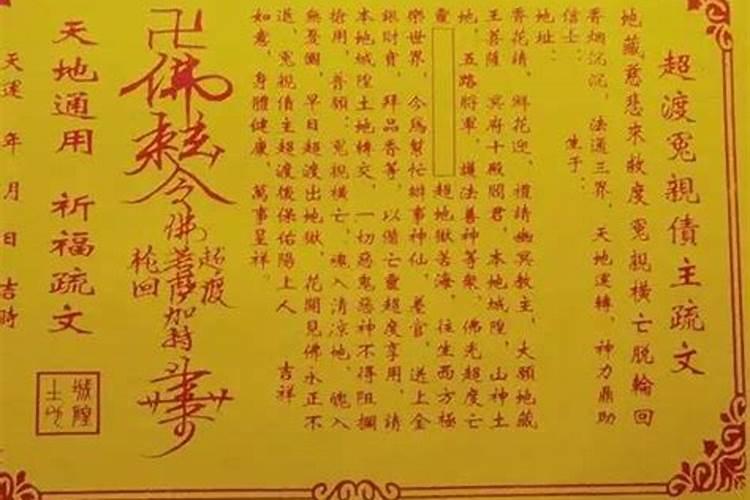 超渡冤親債主疏文
地藏慈悲來救度冤親橫亡脫輪回
香烟沉沉，法通三界，天地運轉，神力鼎助
信士： 生于：
地址：
香花請，鮮花迎，禮請幽冥教主，大願地藏
王菩薩 冥府十殿閻君，本地城隍，山神土
地，五路將軍，護法善神等衆，佛光超度亡
靈 超地獄苦海，往生西方極
樂世界，今為幫忙辦事神仙，差官，送上金
銀財寶，拜品香等，以備亡靈超度享用，請
本地城隍土地轉交，一切惡鬼惡神不得阻攔
搶用，普願：冤親橫亡，魂入清涼地，魄入
無憂園，早日超渡出地獄，花開見佛永正不
退，冤親債主超渡後保佑陽上人 吉祥
如意，身體健康，萬事呈祥。
卍佛來玄令佛菩薩加持
超渡
輪回
天地通用 祈福疏文
城隍
土地
天運 年 月 日 吉時